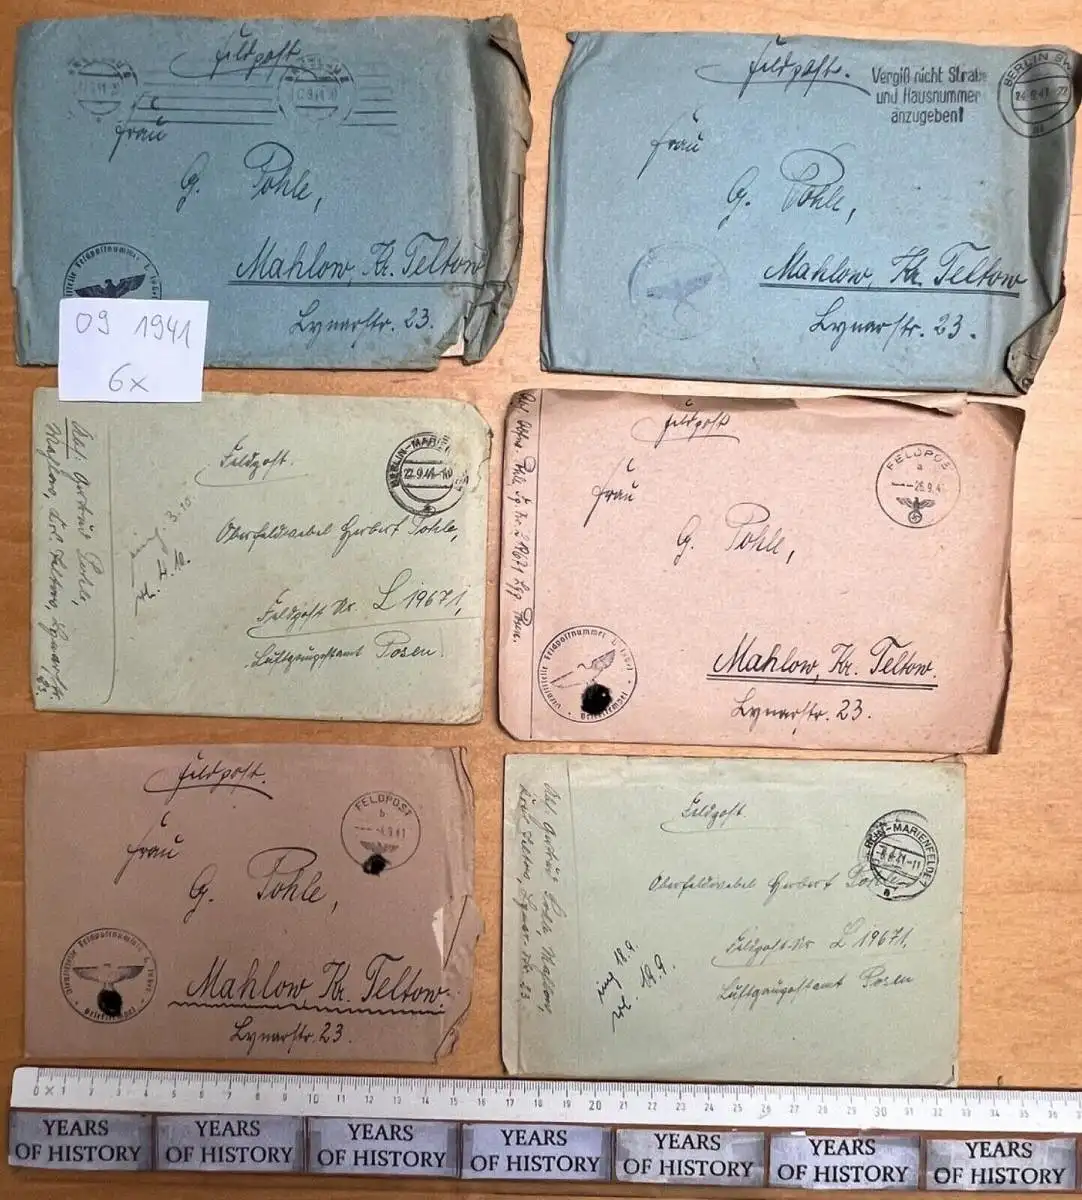 Feldpost
Frau
G. Pohle,
Mahlow, Kr. Teltow
Lynarstr. 23.
09 1941
6x
Feldpost.
Vergiß nicht Straße
und Hausnummer
anzugeben!
BERLIN SW
Frau
G. Pohle,
Mahlow, Kr. Teltow
Lynarstr. 23.
Abs: Gertrud Pohle,
Mahlow, Krs. Teltow, Lynarstr.
23.
Feldpost.
BERLIN-MARIE
22.9.41
Oberfeldwebel Herbert Pohle,
Feldpost Nr. L 19671,
Luftgaupostamt Posen.
eing. 3.10.
4.10.
Feldpost
FELDPOST
a
26.9.4
Frau
G. Pohle,
Mahlow, Kr. Teltow.
Lynarstr. 23.
Dienststelle Feldpostnummer
Briefstempel
Feldpost.
FELDPOST
b
4.9.41
Frau
G. Pohle,
Mahlow, Kr. Teltow.
Lynarstr. 23.
Dienststelle Feldpostnummer
Briefstempel
Abs: Gertrud Pohle, Mahlow,
Krs. Teltow, Lynarstr. 23.
Feldpost.
RLIN-MARIENFELDE
Oberfeldwebel Herbert Pohle
Feldpost-Nr L 19671.
Luftgaupostamt Posen
eing 18.9.
19.9.
0 1 2 3 4 5 6 7 8 9 10 11 12 13 14 15 16 17 18 19 20 21 22 23 24 25 26 27 28 29 30 31 32 33 34 35 36
YEARS OF HISTORY
YEARS OF HISTORY
YEARS OF HISTORY
YEARS OF HISTORY
YEARS OF HISTORY
YEARS OF HISTORY
YEARS OF HISTORY